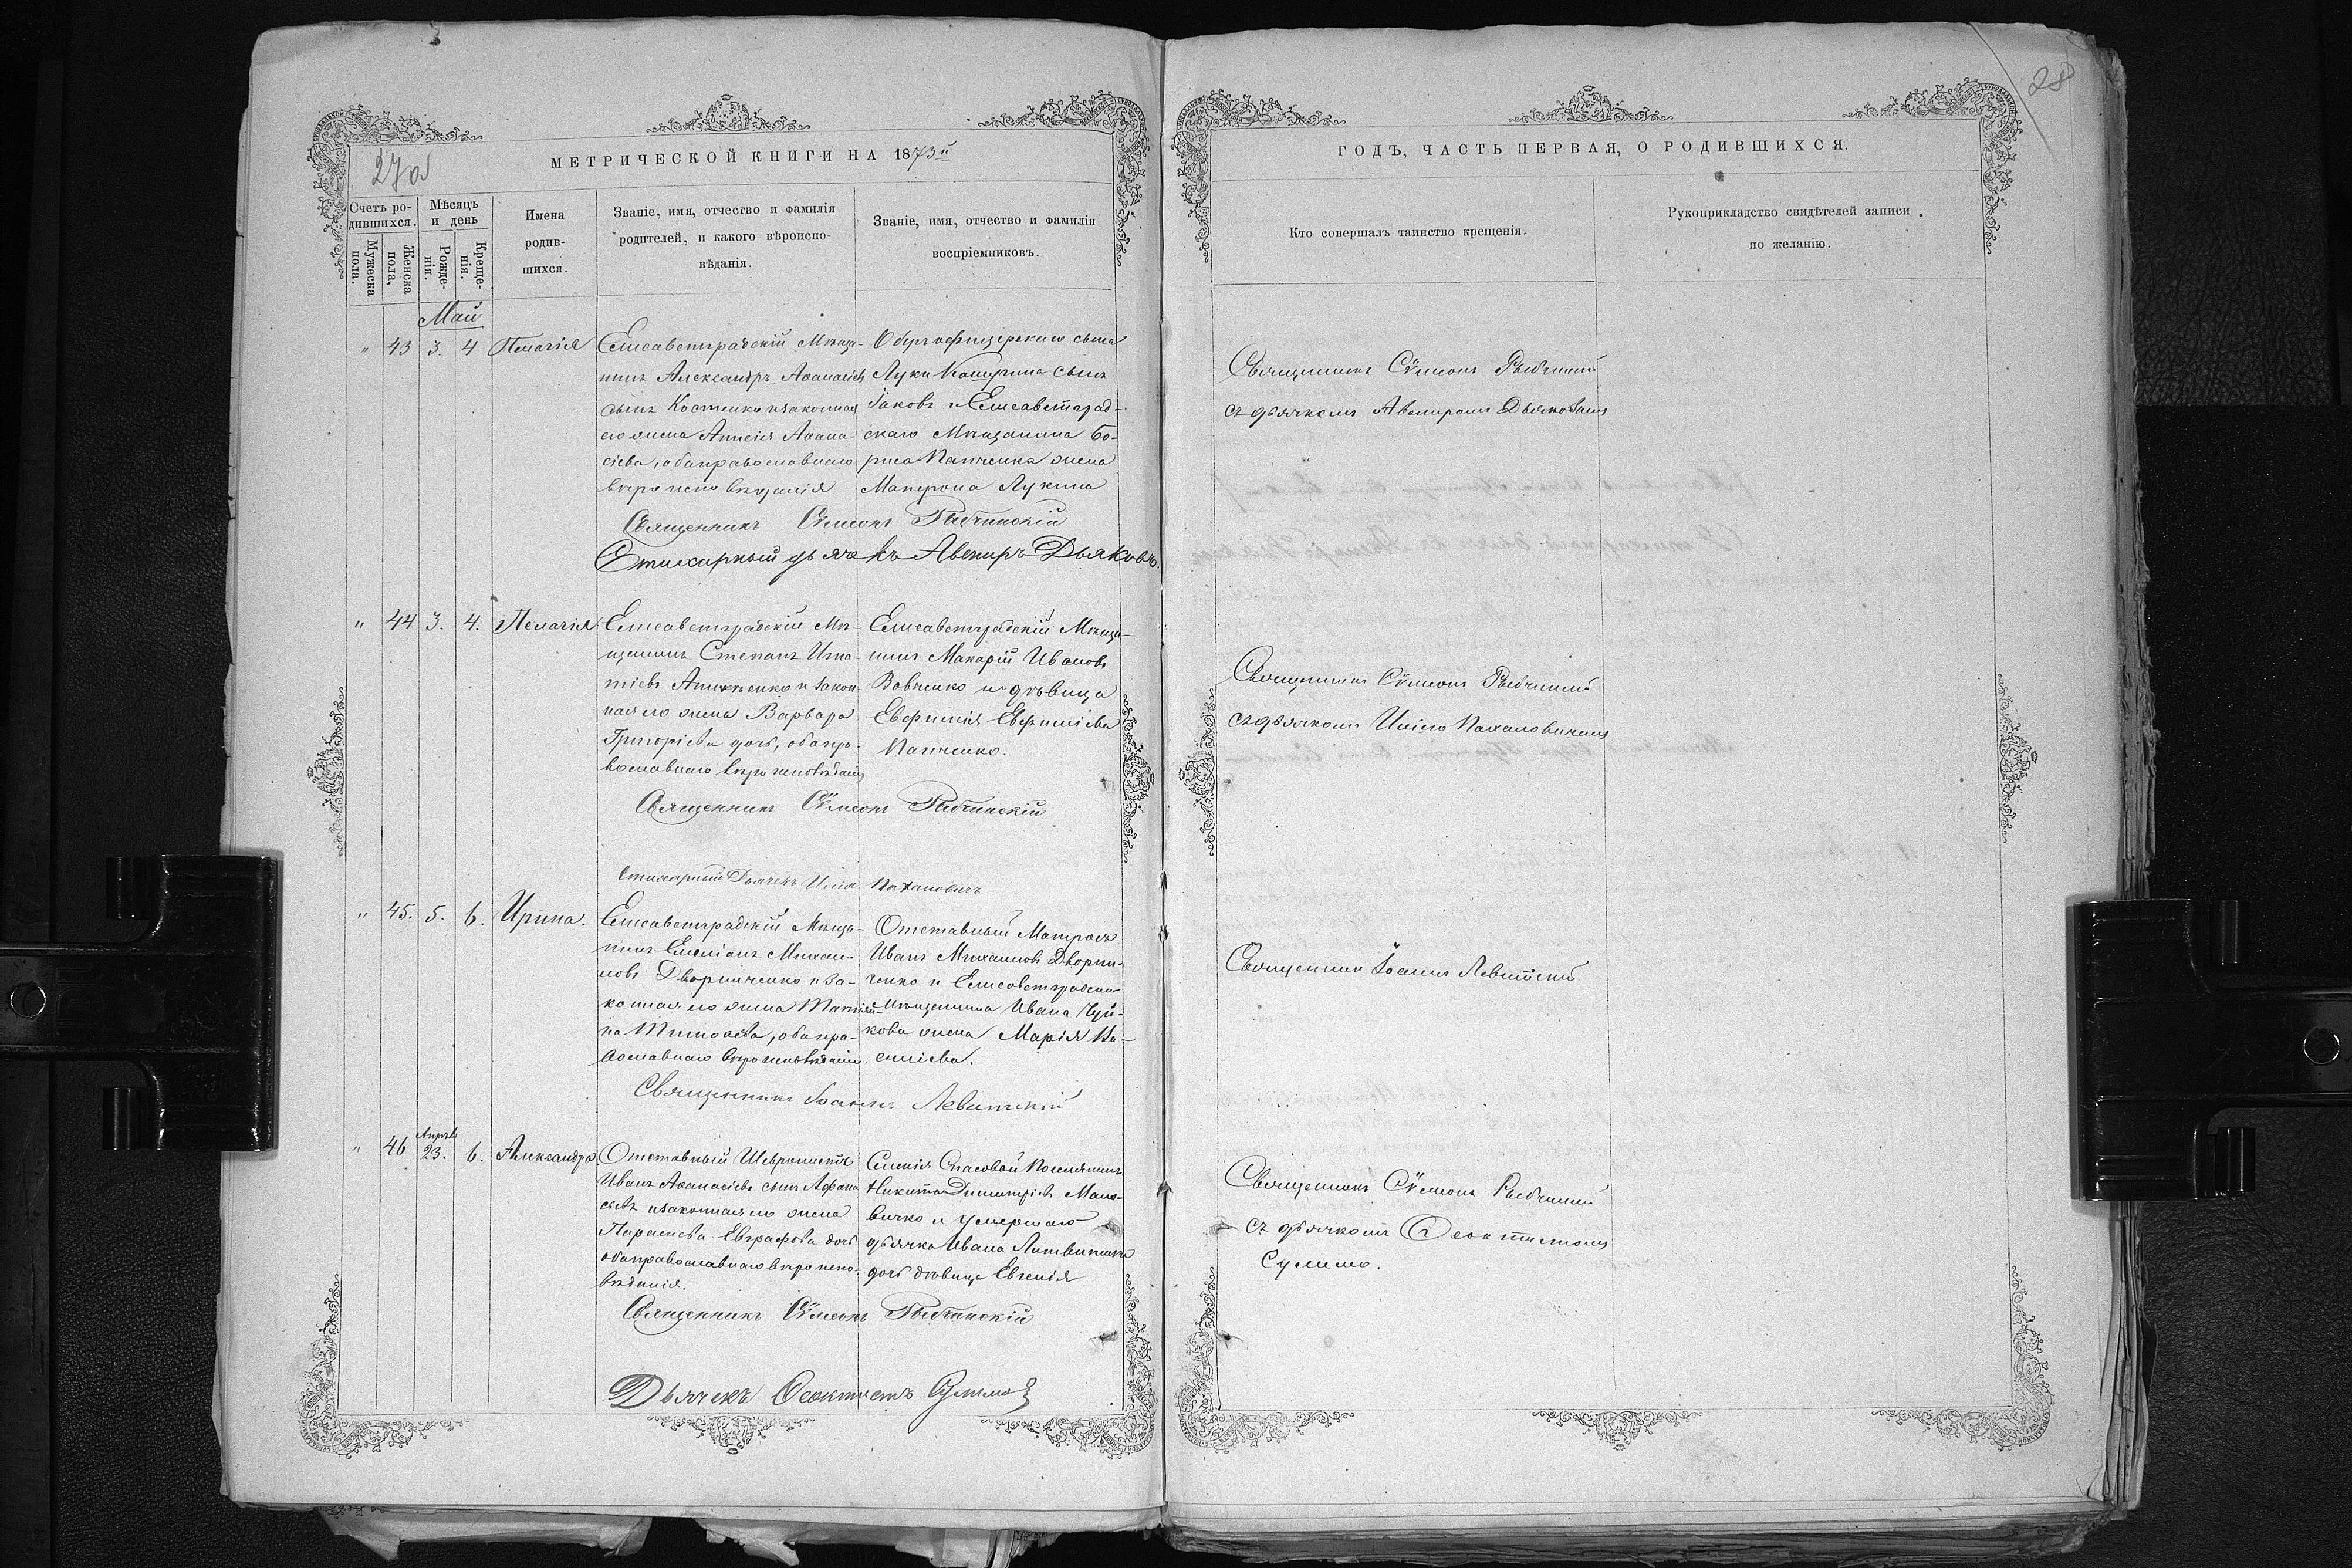 27об
МЕТРИЧЕСКОЙ КНИГИ НА 1873й
Счетъ ро-
дившихся.
Мужеска
пола.
Женска
пола.
Мѣсяцъ
и день
Рожде-
нія.
Креще-
нія.
Имена
родив-
шихся.
Званіе, имя, отчество и фамилія
родителей, и какого вѣроиспо-
вѣданія.
Званіе, имя, отчество и фамилія
воспріемниковъ.
Май
" 43 3. 4 Пелагія
Елисаветградскій Мѣща-
нинъ Александръ Аѳанасіевъ
сынъ Костенко и законная
его жена Анисія Аѳана-
сіева, оба православнаго
вѣроисповѣданія
Оберъ офицерскаго сына
Луки Каширина сынъ
Іаковъ и Елисаветград-
скаго Мѣщанина Бо-
риса Панченка жена
Матрона Лукина
Священникъ Сѵмеонъ Рыбчинскій
Стихарный дьячекъ Авениръ Дьяковъ.
" 44 3. 4. Пелагія
Елисаветградскій Мѣ-
щанинъ Стефанъ Игна-
тіевъ и закон-
ная его жена Варвара
Григоріева дочь, оба пра-
вославнаго вѣроисповѣданія
Елисаветградскій Мѣща-
нинъ Макарій Ивановъ
Вовченко и дѣвица
Евфимія Евфиміева
Панченко.
Священникъ Сѵмеонъ Рыбчинскій
Стихарный Дьячекъ Илія Пахановичъ
" 45. 5. 6. Ирина.
Елисаветградскій Мѣща-
нинъ Емеліанъ Михаи-
ловъ Дворниченко и за-
конная его жена Татія-
на Тимоѳеева, оба пра-
вославнаго вѣроисповѣданія
Отставный Матросъ
Иванъ Михаиловъ Дворни-
ченко и Елисаветградскаго
Мѣщанина Ивана Чуй-
кова жена Марія Ва-
силіева.
Священникъ Іоаннъ Левитскій
" 46 Апрѣль 23. 6. Александра
Отставный
Иванъ Аѳанасіевъ сынъ Афана
сьевъ и законная его жена
Параскева Евграфова дочь
оба православнаго вѣроиспо-
вѣданія.
Селенія Спасовой Поселянинъ
Никита Димитріевъ Мало-
вичко и умершаго
дьячка Ивана Литвиненка
дочь дѣвица Евгенія
Священникъ Сѵмеонъ Рыбчинскій
Дьячекъ Ѳеоктистъ Сулима
28
ГОДЪ, ЧАСТЬ ПЕРВАЯ, О РОДИВШИХСЯ.
Кто совершалъ таинство крещенія.
Рукоприкладство свидѣтелей записи
по желанію.
Священникъ Сѵмеонъ Рыбчинскій
съ дьячкомъ Авениромъ Дьяковымъ
Священникъ Сѵмеонъ Рыбчинскій
съ дьячкомъ Иліею Пахановичемъ
Священникъ Іоаннъ Левитскій
Священникъ Сѵмеонъ Рыбчинскій
съ дьячкомъ Ѳеоктистомъ
Сулимо.